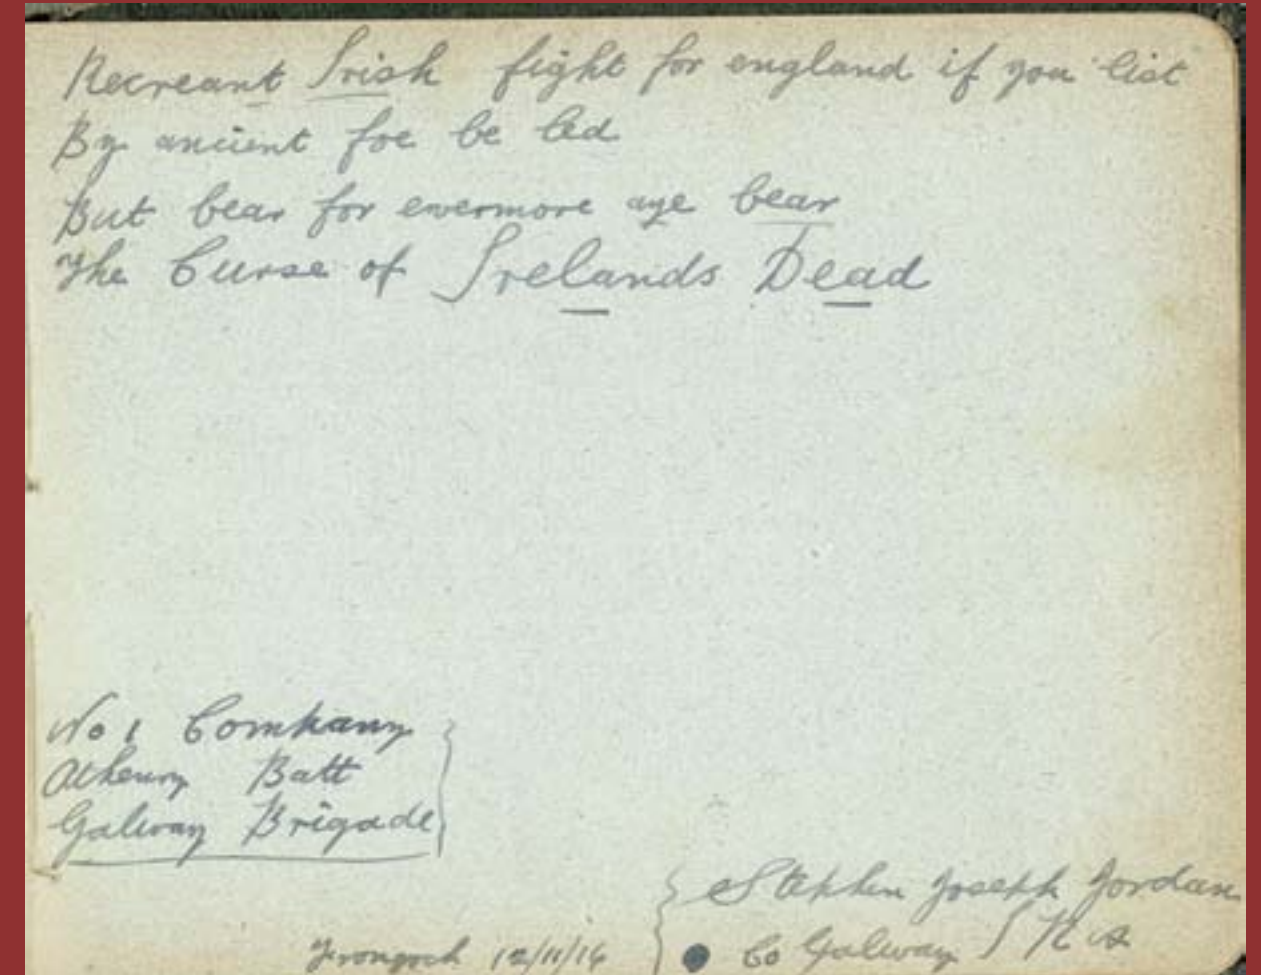 Recreant Irish fight for england if you list
By ancient foe be led
But bear for evermore aye bear
The Curse of Irelands Dead
No 1 Company
Athenry Batt
Galway Brigade
Stephen Joseph Jordan
Frongoch 12/11/16
Co Galway